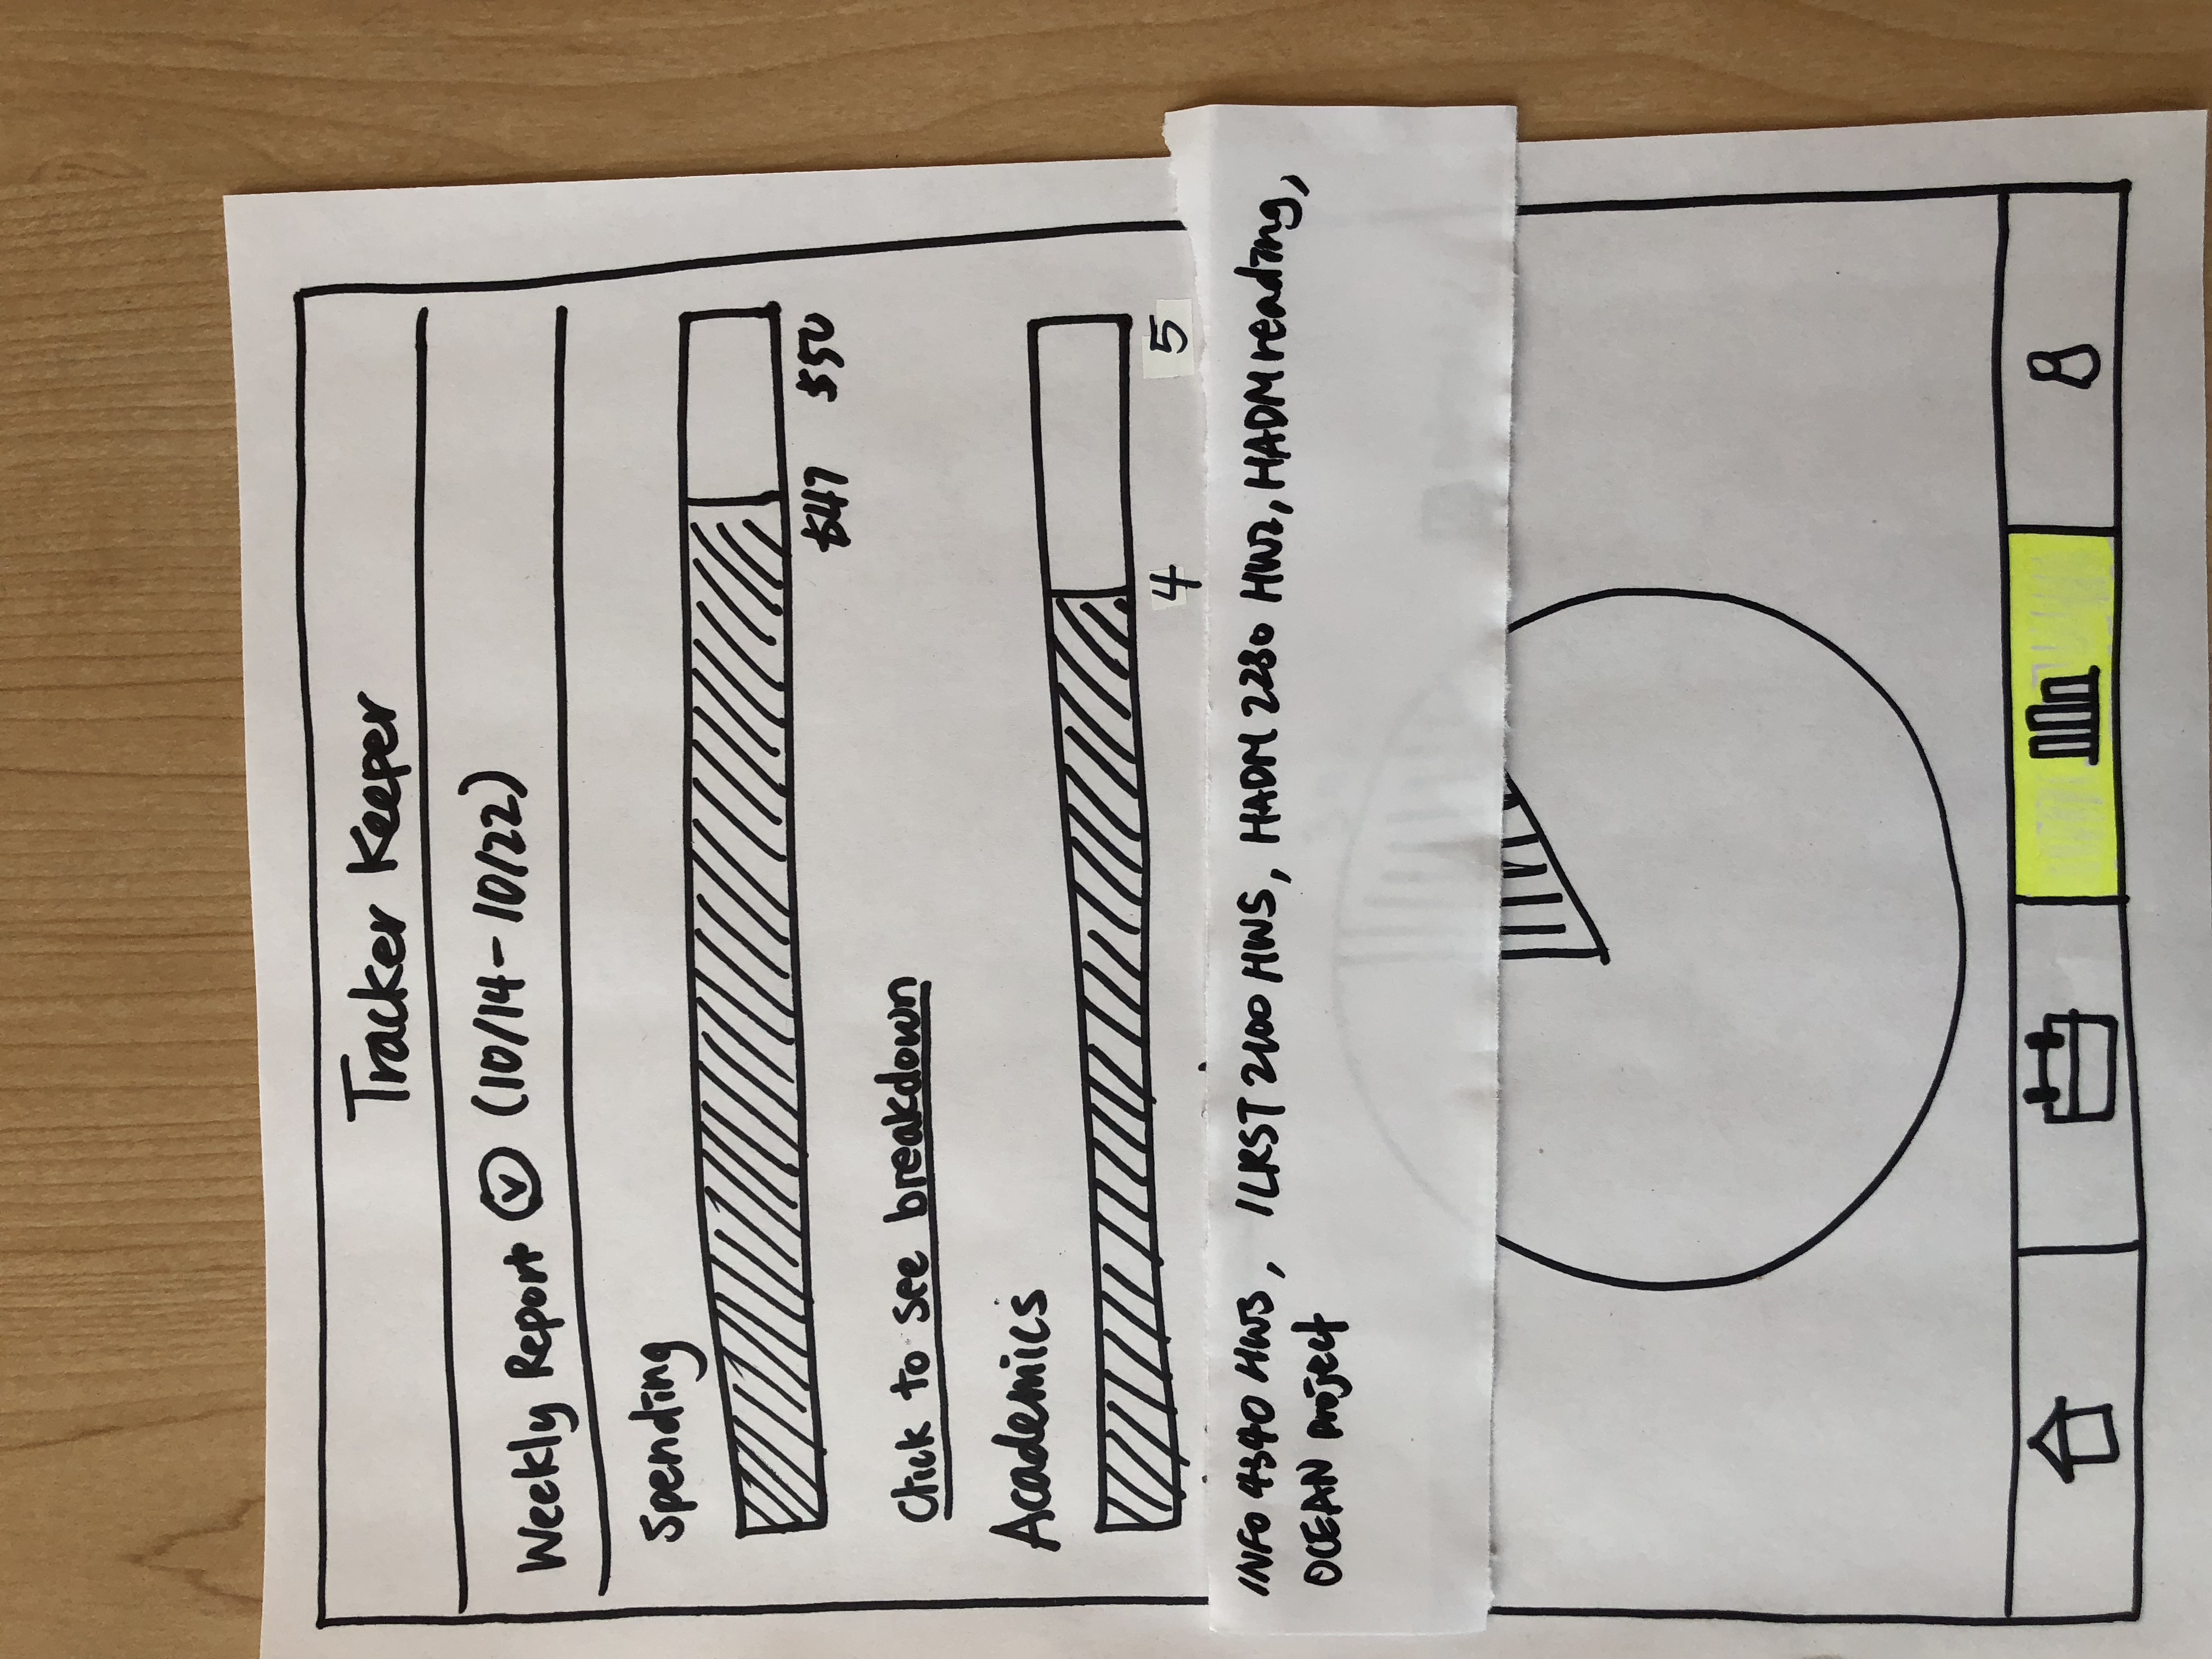 Tracker Keeper
Weekly Report (10/14-10/22)
Spending
$47 $50
Click to see breakdown
Academics
4 5
INFO 4340 HW3, ILRST 2100 HW5, HADM 2230 HW2, HADM reading,
OCEAN project